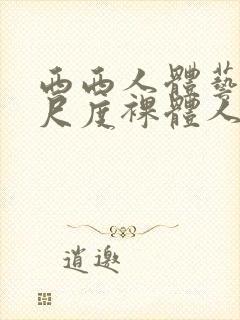 西西人體藝
尺度裸體人
逍邀